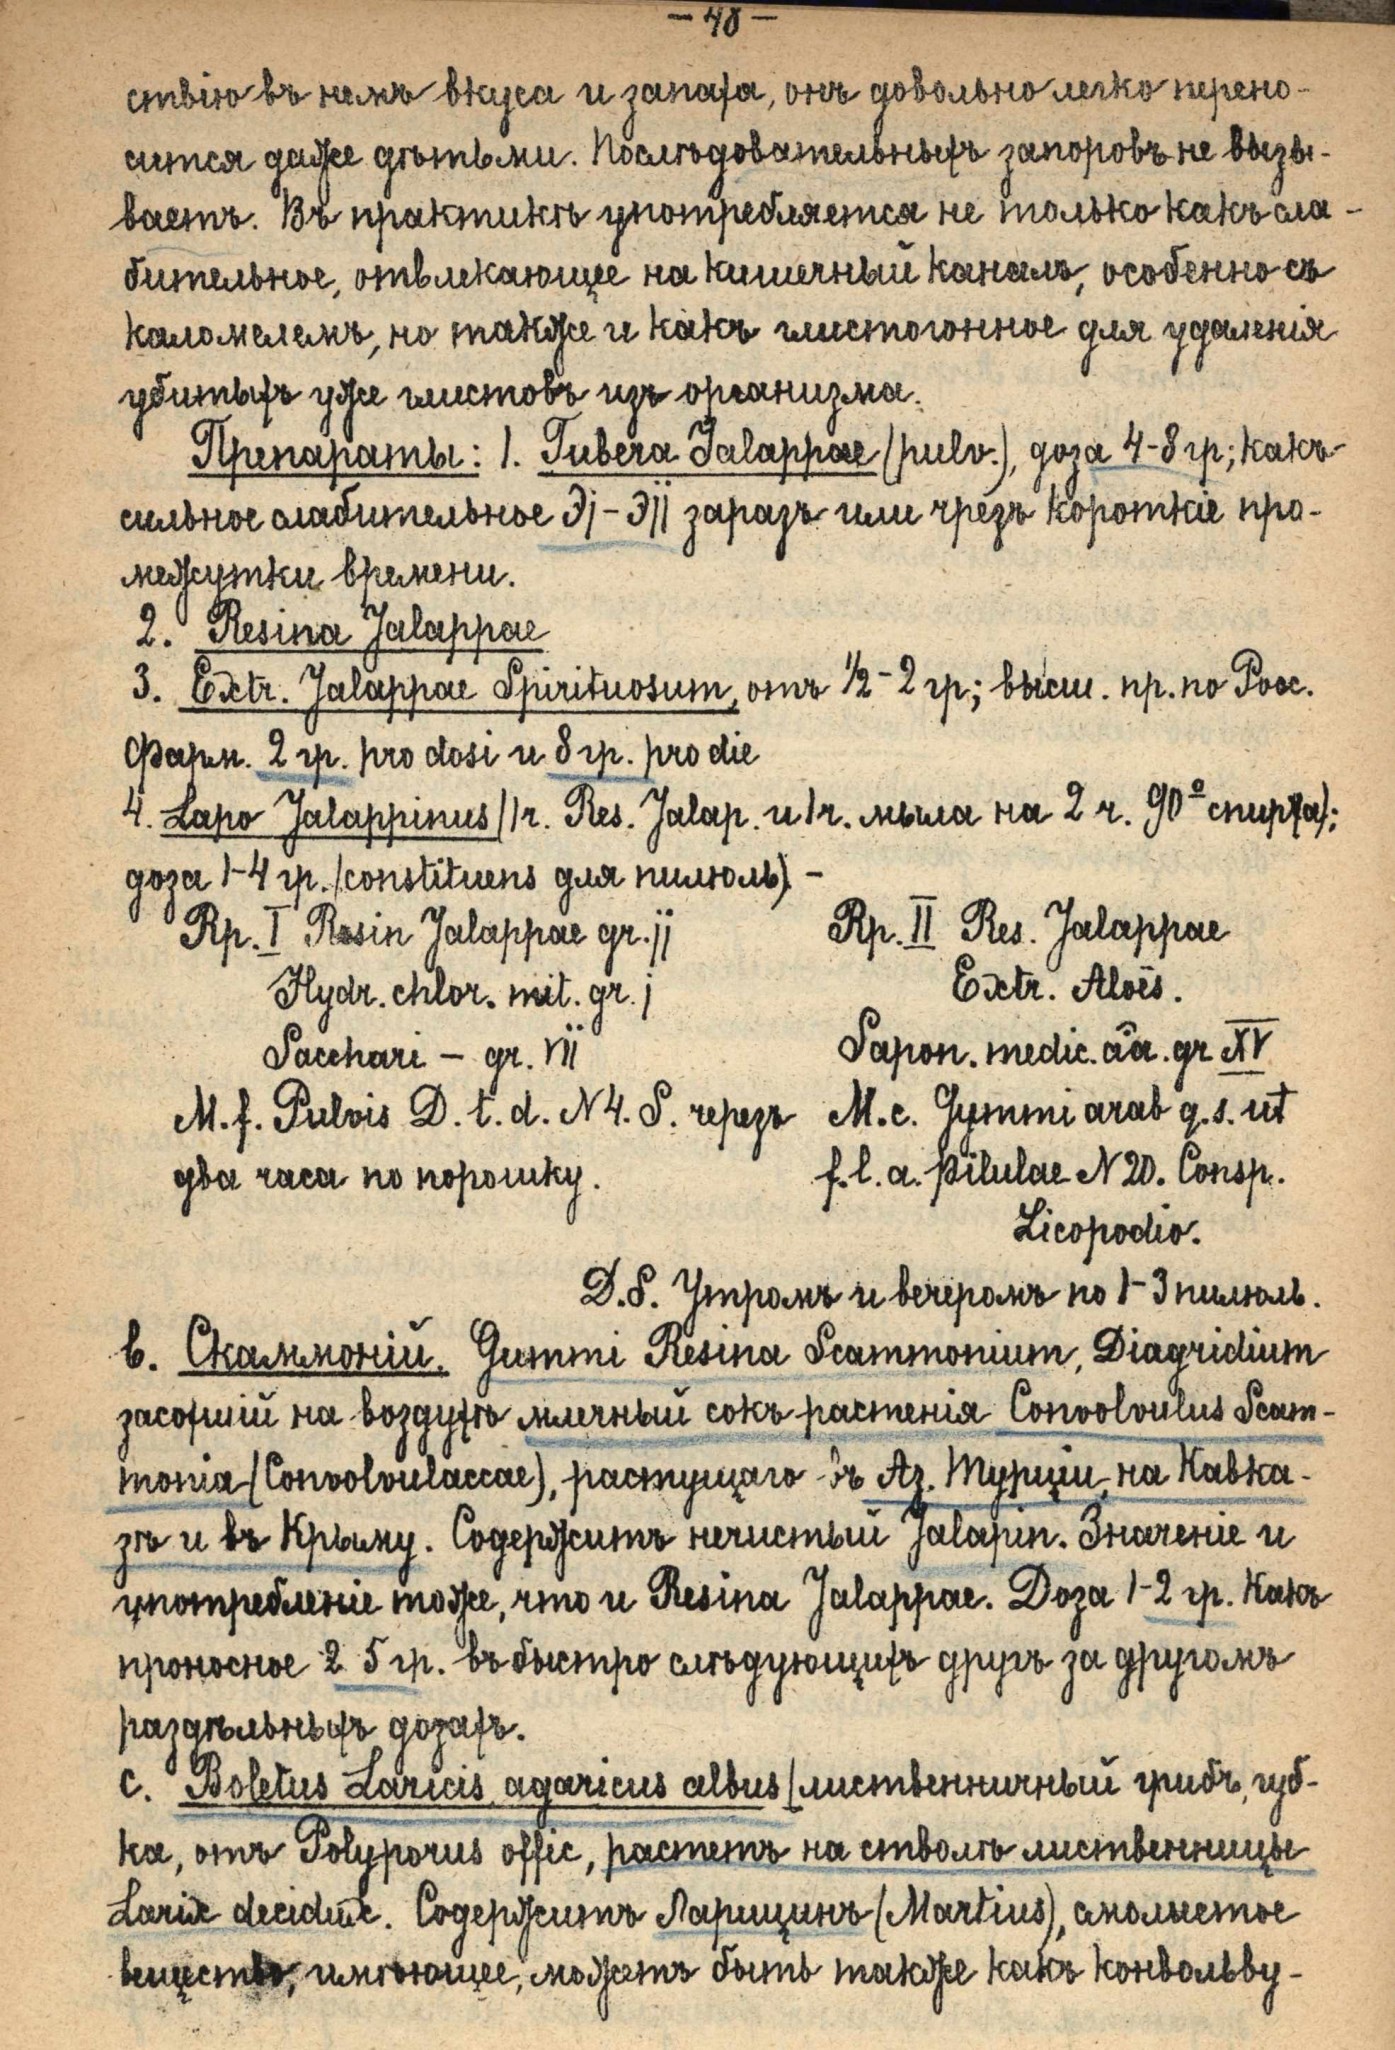 — 48 —
ствію въ немъ вкуса и запаха, онъ довольно легко перено-
сится даже дѣтьми. Послѣдовательныхъ запоровъ не вызы-
ваетъ. Въ практикѣ употребляется не только какъ сла-
бительное, отвлекающее на кишечный каналъ, особенно съ
каломелемъ, но также и какъ глистогонное для удаленія
убитыхъ уже глистовъ изъ организма.
Препараты: 1. Tubera Jalappae (pulv.), доза 4-8 гр; какъ
сильное слабительное ℈j - ℈jj заразъ или чрезъ короткіе про-
межутки времени.
2. Resina Jalappae
3. Extr. Jalappae Spirituosum, отъ ½ - 2 гр; высш. пр. по Росс.
Фарм. 2 гр. pro dosi и 8 гр. pro die
4. Sapo Jalappinus (1 ч. Res. Jalap. и 1 ч. мыла на 2 ч. 90° спирта);
доза 1-4 гр. (constituens для пилюль). -
Rp. I Resin Jalappae gr. jj
Hydr. chlor. mit. gr. j
Sacchari - gr. VII
M. f. Pulvis D. t. d. N 4. S. черезъ
два часа по порошку.
Rp. II Res. Jalappae
Extr. Aloës.
Sapon. medic. āа. gr XV
M. c. Gymmi arab q. s. ut
f. l. a. pilulae N 20. Consp.
Licopodio.
D. S. Утромъ и вечеромъ по 1-3 пилюль.
в. Скаммоній. Gummi Resina Scammonium, Diagridium
засохшій на воздухѣ млечный сокъ растенія Convolvulus Scam-
monia (Convolvulaceae), растущаго въ Аз. Турціи, на Кавка-
зѣ и въ Крыму. Содержитъ нечистый Jalapin. Значеніе и
употребленіе тоже, что и Resina Jalappae. Доза 1-2 гр. Какъ
проносное 2 5 гр. въ быстро слѣдующихъ другъ за другомъ
раздѣльныхъ дозахъ.
с. Boletus Laricis, agaricus albus (лиственничный грибъ, губ-
ка, отъ Polyporus offic, растетъ на стволѣ лиственницы
Larix deciduae. Содержитъ Ларицинъ (Martius), смолистое
вещество, имѣющее, можетъ быть также какъ конвольву-